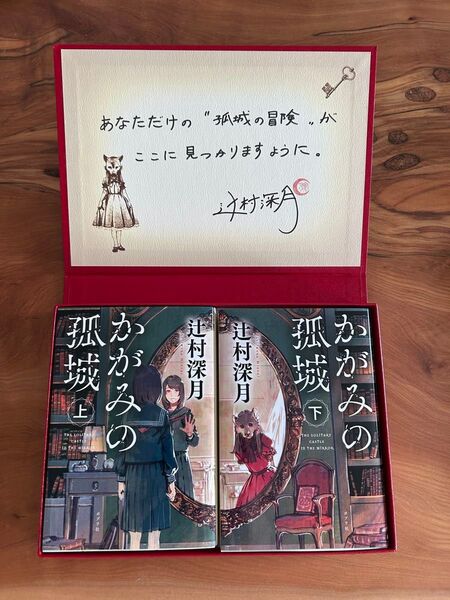 あなただけの〝孤城の冒険〟が
ここに見つかりますように。
辻村深月
かがみの
孤城
上
THE SOLITARY
CASTLE
IN THE MIRROR
辻村深月
辻村深月
かがみの
孤城
下
THE SOLITARY
CASTLE
IN THE MIRROR